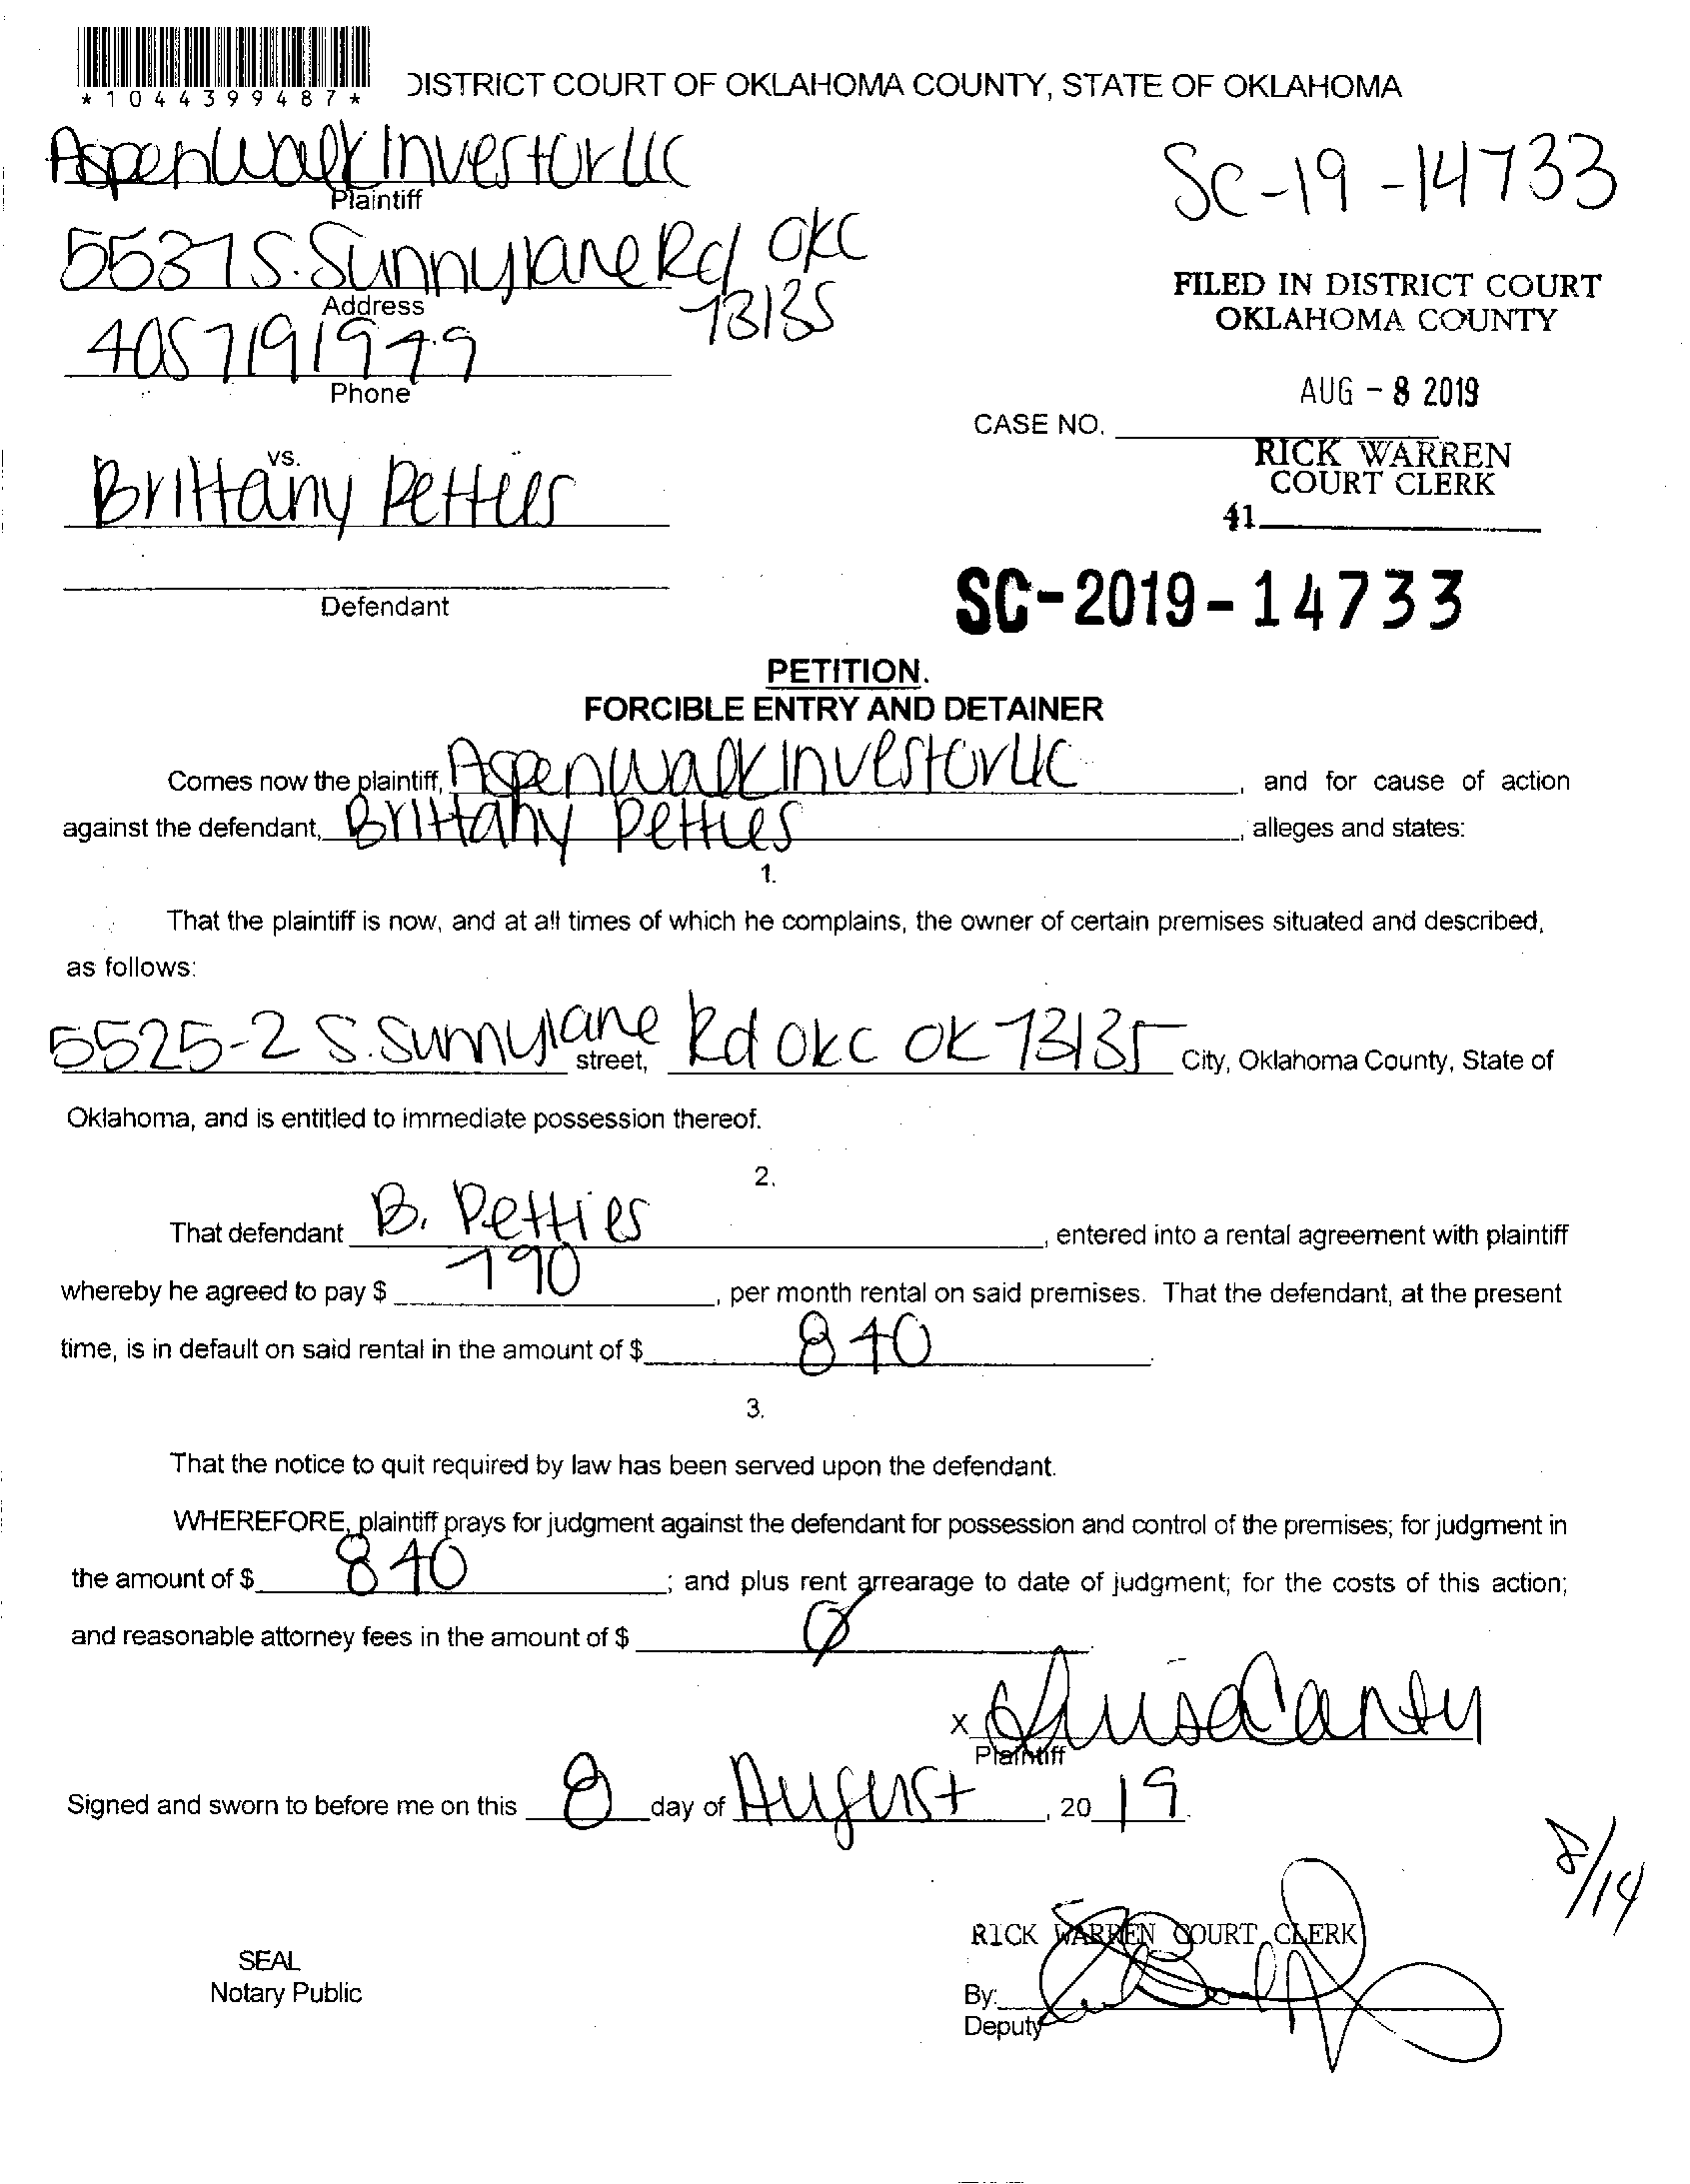 *1044399487*
DISTRICT COURT OF OKLAHOMA COUNTY, STATE OF OKLAHOMA
Aspen Walk Investor LLC
Plaintiff
SC-19-14733
5537 S. Sunnylane Rd OKC
73135
Address
FILED IN DISTRICT COURT
OKLAHOMA COUNTY
4057191979
Phone
AUG - 8 2019
CASE NO.
RICK WARREN
COURT CLERK
41
vs.
Brittany Petties
Defendant
SC-2019-14733
PETITION.
FORCIBLE ENTRY AND DETAINER
Comes now the plaintiff, Aspen Walk Investor LLC, and for cause of action
against the defendant, Brittany Petties, alleges and states:
1.
That the plaintiff is now, and at all times of which he complains, the owner of certain premises situated and described,
as follows:
5525-2 S. Sunnylane street, Rd OKC OK 73135 City, Oklahoma County, State of
Oklahoma, and is entitled to immediate possession thereof.
2.
That defendant B. Petties, entered into a rental agreement with plaintiff
whereby he agreed to pay $ 790, per month rental on said premises. That the defendant, at the present
time, is in default on said rental in the amount of $ 840.
3.
That the notice to quit required by law has been served upon the defendant.
WHEREFORE, plaintiff prays for judgment against the defendant for possession and control of the premises; for judgment in
the amount of $ 840; and plus rent arrearage to date of judgment; for the costs of this action;
and reasonable attorney fees in the amount of $ Ø.
X
Plaintiff
Signed and sworn to before me on this 8 day of August, 2019.
8/14
RICK WARREN COURT CLERK
SEAL
Notary Public
By:
Deputy